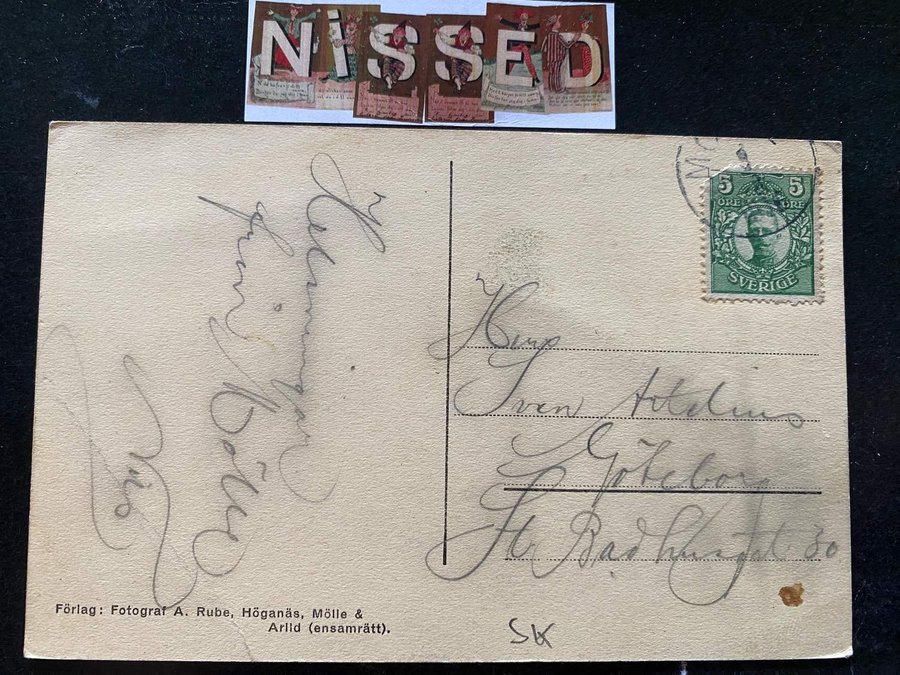 NiSSED
5 5
ÖRE ÖRE
SVERIGE
Hälsningar
från Mölle
Nils
Herr
Sven Artelius
Göteborg
St Badhusgat 30
Förlag: Fotograf A. Rube, Höganäs, Mölle &
Arild (ensamrätt).
SK